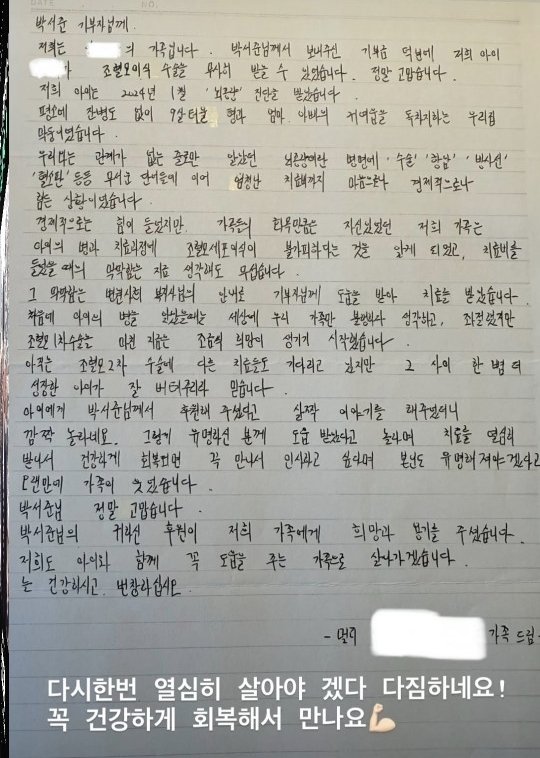 DATE NO.
박서준 기부자님께.
저희는 의 가족입니다. 박서준님께서 보내주신 기부금 덕님에 저희 아이
가 조혈모이식 수술을 무사히 받을 수 있었습니다. 정말 고맙습니다.
저희 아이는 2024년 1월 '뇌종양' 진단을 받았습니다.
평소에 잔병도 없이 9살 터울 형과 엄마 아빠의 귀여움을 독차지하는 우리집
막둥이였습니다.
우리와는 관계가 없는 줄로만 알았던 뇌종양이란 병명에 '수술' '항암' '방사선'
'혈소판' 등등 무서운 단어들에 이어 엄청난 치료비까지 마음으로나 경제적으로나
힘든 상황이었습니다.
경제적으로는 힘이 들었지만 가족들의 화목만큼은 자신있었던 저희 가족은
아이의 병과 치료과정에 조혈모세포이식이 불가피하다는 것을 알게 되었고, 치료비를
들었을때의 막막함은 지금 생각해도 무섭습니다.
그 막막함는 병원사회 복지사님의 안내로 기부자님께 도움을 받아 치료를 받았습니다.
처음에 아이의 병을 알았을때는 세상에 우리 가족만 불행하다 생각하고, 좌절했지만
조혈모1차수술을 마친 지금은 조금씩 희망이 생기기 시작했습니다.
아직은 조혈모2차 수술에 다른 치료들도 기다리고 있지만 그 사이 한 뼘 더
성장한 아이가 잘 버텨주리라 믿습니다.
아이에게 박서준님께서 후원해 주셨다고 살짝 이야기를 해주었더니
깜짝 놀라네요. 그렇게 유명하신 분께 도움 받았다고 놀라며 치료를 열심히
받아서 건강하게 회복되면 꼭 만나서 인사하고 싶다며 본인도 유명해져야겠다고
오랜만에 가족이 웃었습니다.
박서준님 정말 고맙습니다.
박서준님의 귀하신 후원이 저희 가족에게 희망과 용기를 주셨습니다.
저희도 아이와 함께 꼭 도움을 주는 가족으로 살아가겠습니다.
늘 건강하시고 번창하십시오.
- 멀리 가족 드림 -
다시한번 열심히 살아야 겠다 다짐하네요!
꼭 건강하게 회복해서 만나요💪🏻